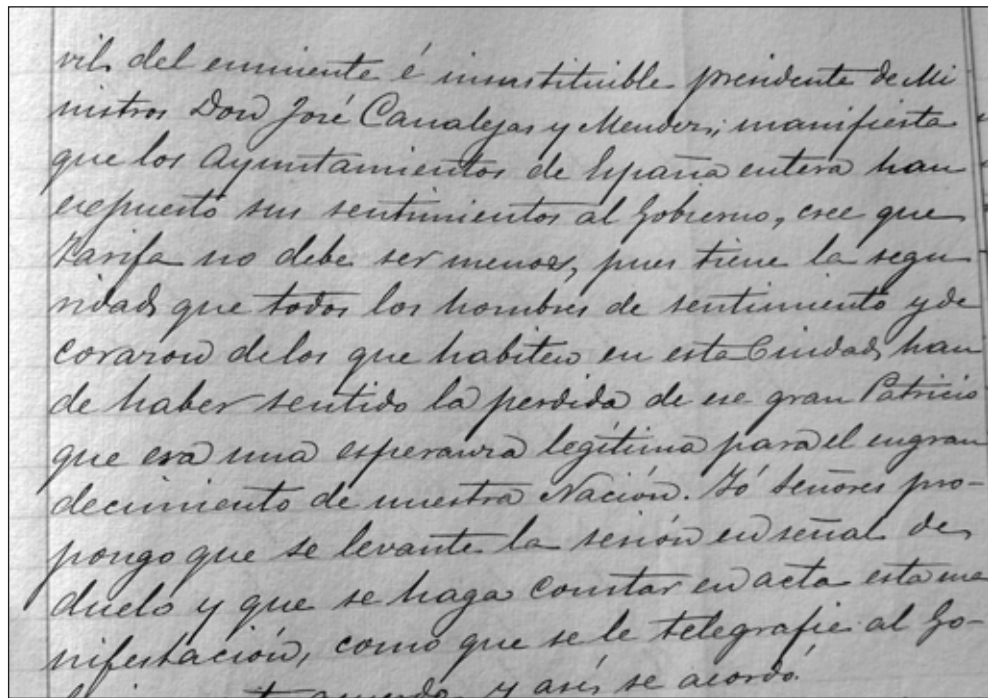 vil del eminente é insustituible presidente de Mi
nistros Don José Canalejas y Mendez; manifiesta
que los Ayuntamientos de España entera han
expuesto sus sentimientos al Gobierno, cree que
Tarifa no debe ser menos, pues tiene la segu
ridad que todos los hombres de sentimiento y de
corazon de los que habiten en esta Ciudad, han
de haber sentido la perdida de ese gran Patricio
que era una esperanza legítima para el engran
decimiento de nuestra Nación. Yó señores pro-
pongo que se levante la sesión en señal de
duelo y que se haga constar en acta esta ma
nifestación, como que se le telegrafie al Go-
acuerdo, y asís se acordó.